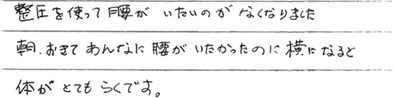 整圧を使って腰が いたいのが なくなりました
朝.おきて あんなに 腰が いたかったのに 横になると
体が とても らくです。